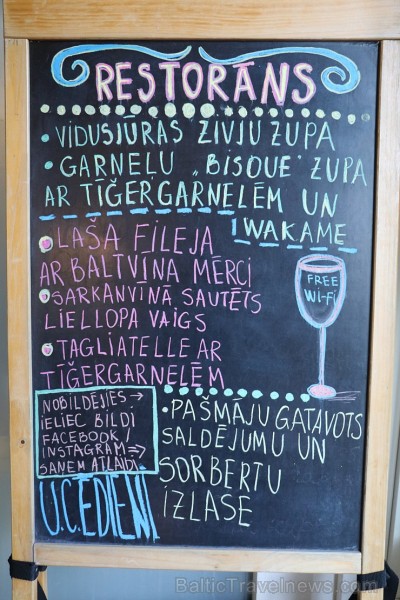 RESTORĀNS
• VIDUSJŪRAS ZIVJU ZUPA
• GARNEĻU „BISQUE" ZUPA
AR TĪĢERGARNELĒM UN
WAKAME
• LAŠA FILEJA
AR BALTVĪNA MĒRCI
• SARKANVĪNĀ SAUTĒTS
LIELLOPA VAIGS
• TAGLIATELLE AR
TĪĢERGARNELĒM
FREE
WI-FI
NOBILDĒJIES →
IELIEC BILDI
FACEBOOK /
INSTAGRAM ⇒
SAŅEM ATLAIDI.
U.C. ĒDIENI
• PAŠMĀJU GATAVOTS
SALDĒJUMU UN
SORBERTU
IZLASE
BalticTravelnews.com